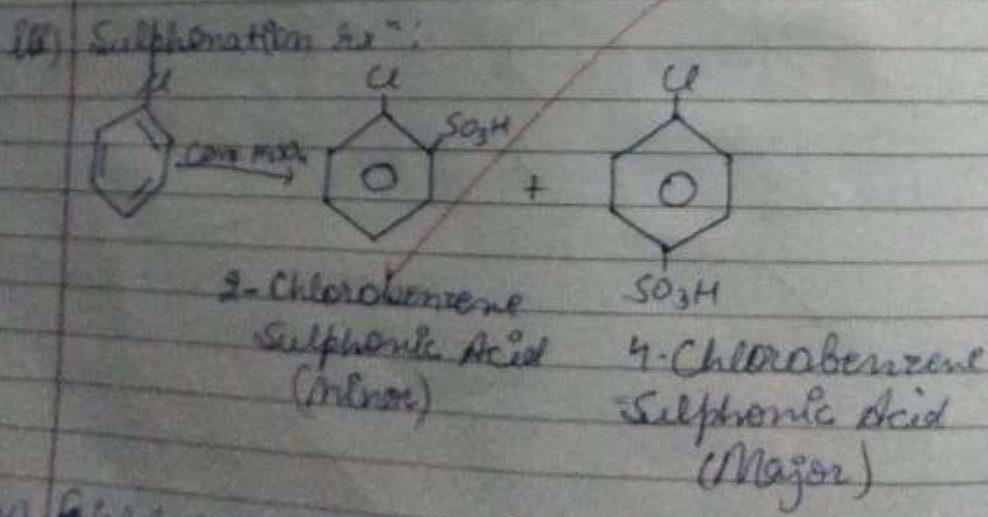 iii) Sulphonation rxⁿ:
Cl
Cl
Cl
SO₃H
conc H₂SO₄
+
SO₃H
2-Chlorobenzene
Sulphonic Acid
(Minor)
4-Chlorobenzene
Sulphonic Acid
(Major)